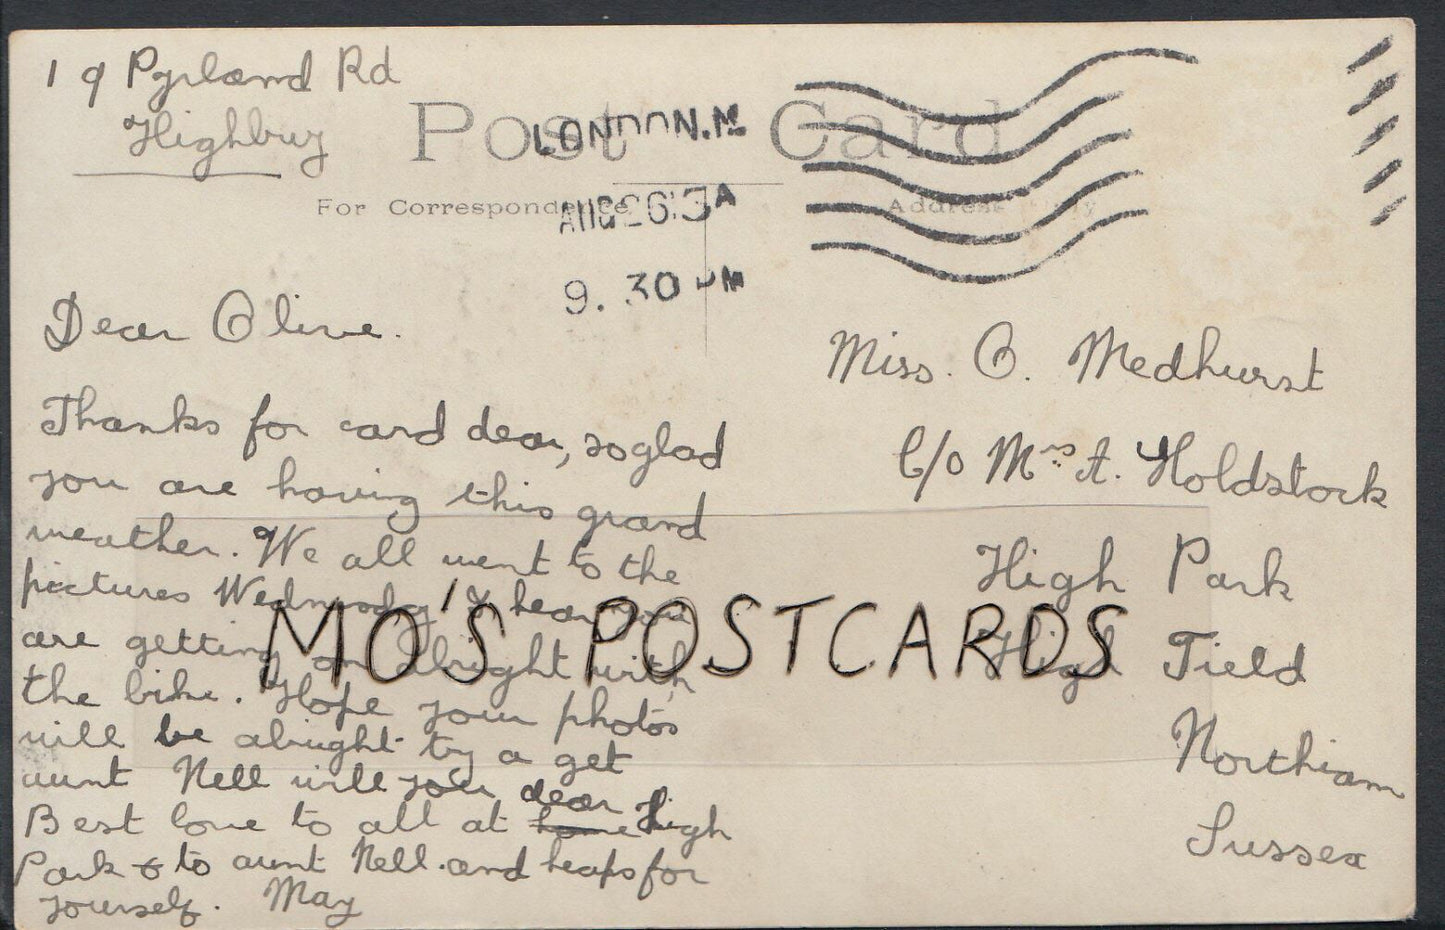 19 Pyrland Rd
Highbury
Post Card
For Correspondence
Address Only
LONDON. N.
AUG 26 13 A
9. 30 PM
Dear Olive.
Thanks for card dear, so glad
you are having this grand
weather. We all went to the
pictures Wednesday I hear you
are getting on alright with
the bike. Hope your photos
will be alright try a get
aunt Nell will you dear
Best love to all at home High
Park & to aunt Nell. and heaps for
yourself. May
Miss. O. Medhurst
C/o Mrs A. Holdstock
High Park
High Field
Northiam
Sussex
MO'S POSTCARDS